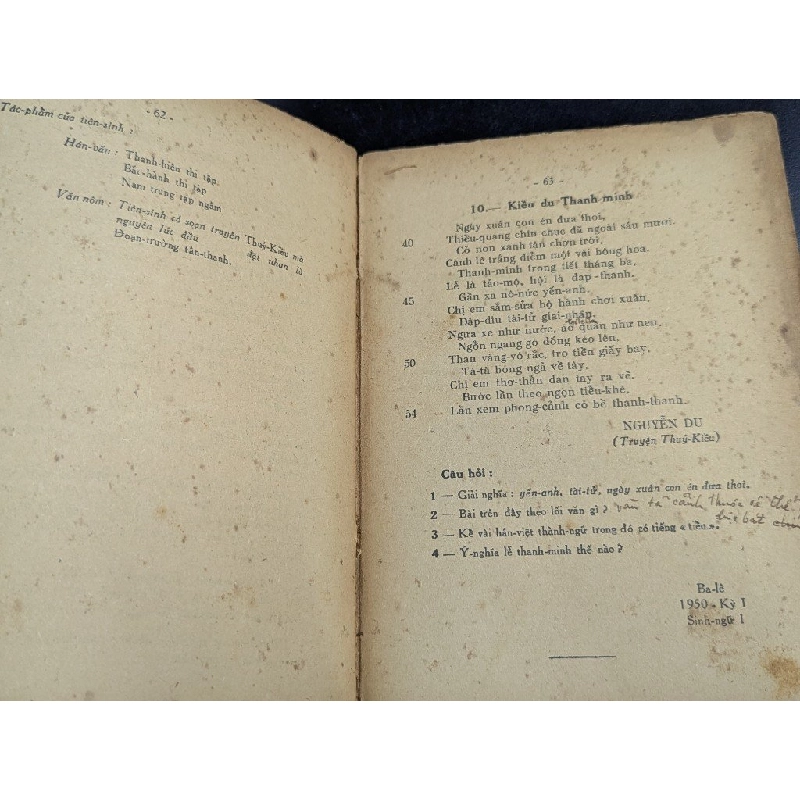 - 62 -
Tác-phẩm của tiên-sinh :
Hán-văn : Thanh-hiên thi tập.
Bắc-hành thi tập
Nam trung tạp ngâm
Văn nôm : Tiên-sinh có soạn truyện Thuý-Kiều mà
nguyên lúc đầu đặt nhan là
Đoạn-trường tân-thanh.
- 63 -
10.— Kiều du Thanh minh
Ngày xuân con én đưa thoi,
40 Thiều-quang chín chục đã ngoài sáu mươi.
Cỏ non xanh tận chơn trời,
Cành lê trắng điểm một vài bông hoa.
Thanh-minh trong tiết tháng ba,
Lễ là tảo-mộ, hội là đạp-thanh.
45 Gần xa nô-nức yến-anh,
Chị em sắm-sửa bộ hành chơi xuân.
Dập-dìu tài-tử giai-nhân,
Ngựa xe như nước, áo quần như nen,
Ngổn ngang gò đống kéo lên,
50 Thoi vàng vó rắc, tro tiền giấy bay.
Tà-tà bóng ngả về tây,
Chị em thơ-thẩn dan tay ra về.
Bước lần theo ngọn tiểu-khê,
54 Lần xem phong-cảnh có bề thanh-thanh.
NGUYỄN DU
(Truyện Thuý-Kiều)
Câu hỏi :
1 — Giải nghĩa : yến-anh, tài-tử, ngày xuân con én đưa thoi.
2 — Bài trên đây theo lối văn gì ? văn tả cảnh thuộc về thể
lục bát
3 — Kể vài hán-việt thành-ngữ trong đó có tiếng « tiểu ».
4 — Ý-nghĩa lễ thanh-minh thế nào ?
Ba-lê
1950 - Kỳ I
Sinh-ngữ I